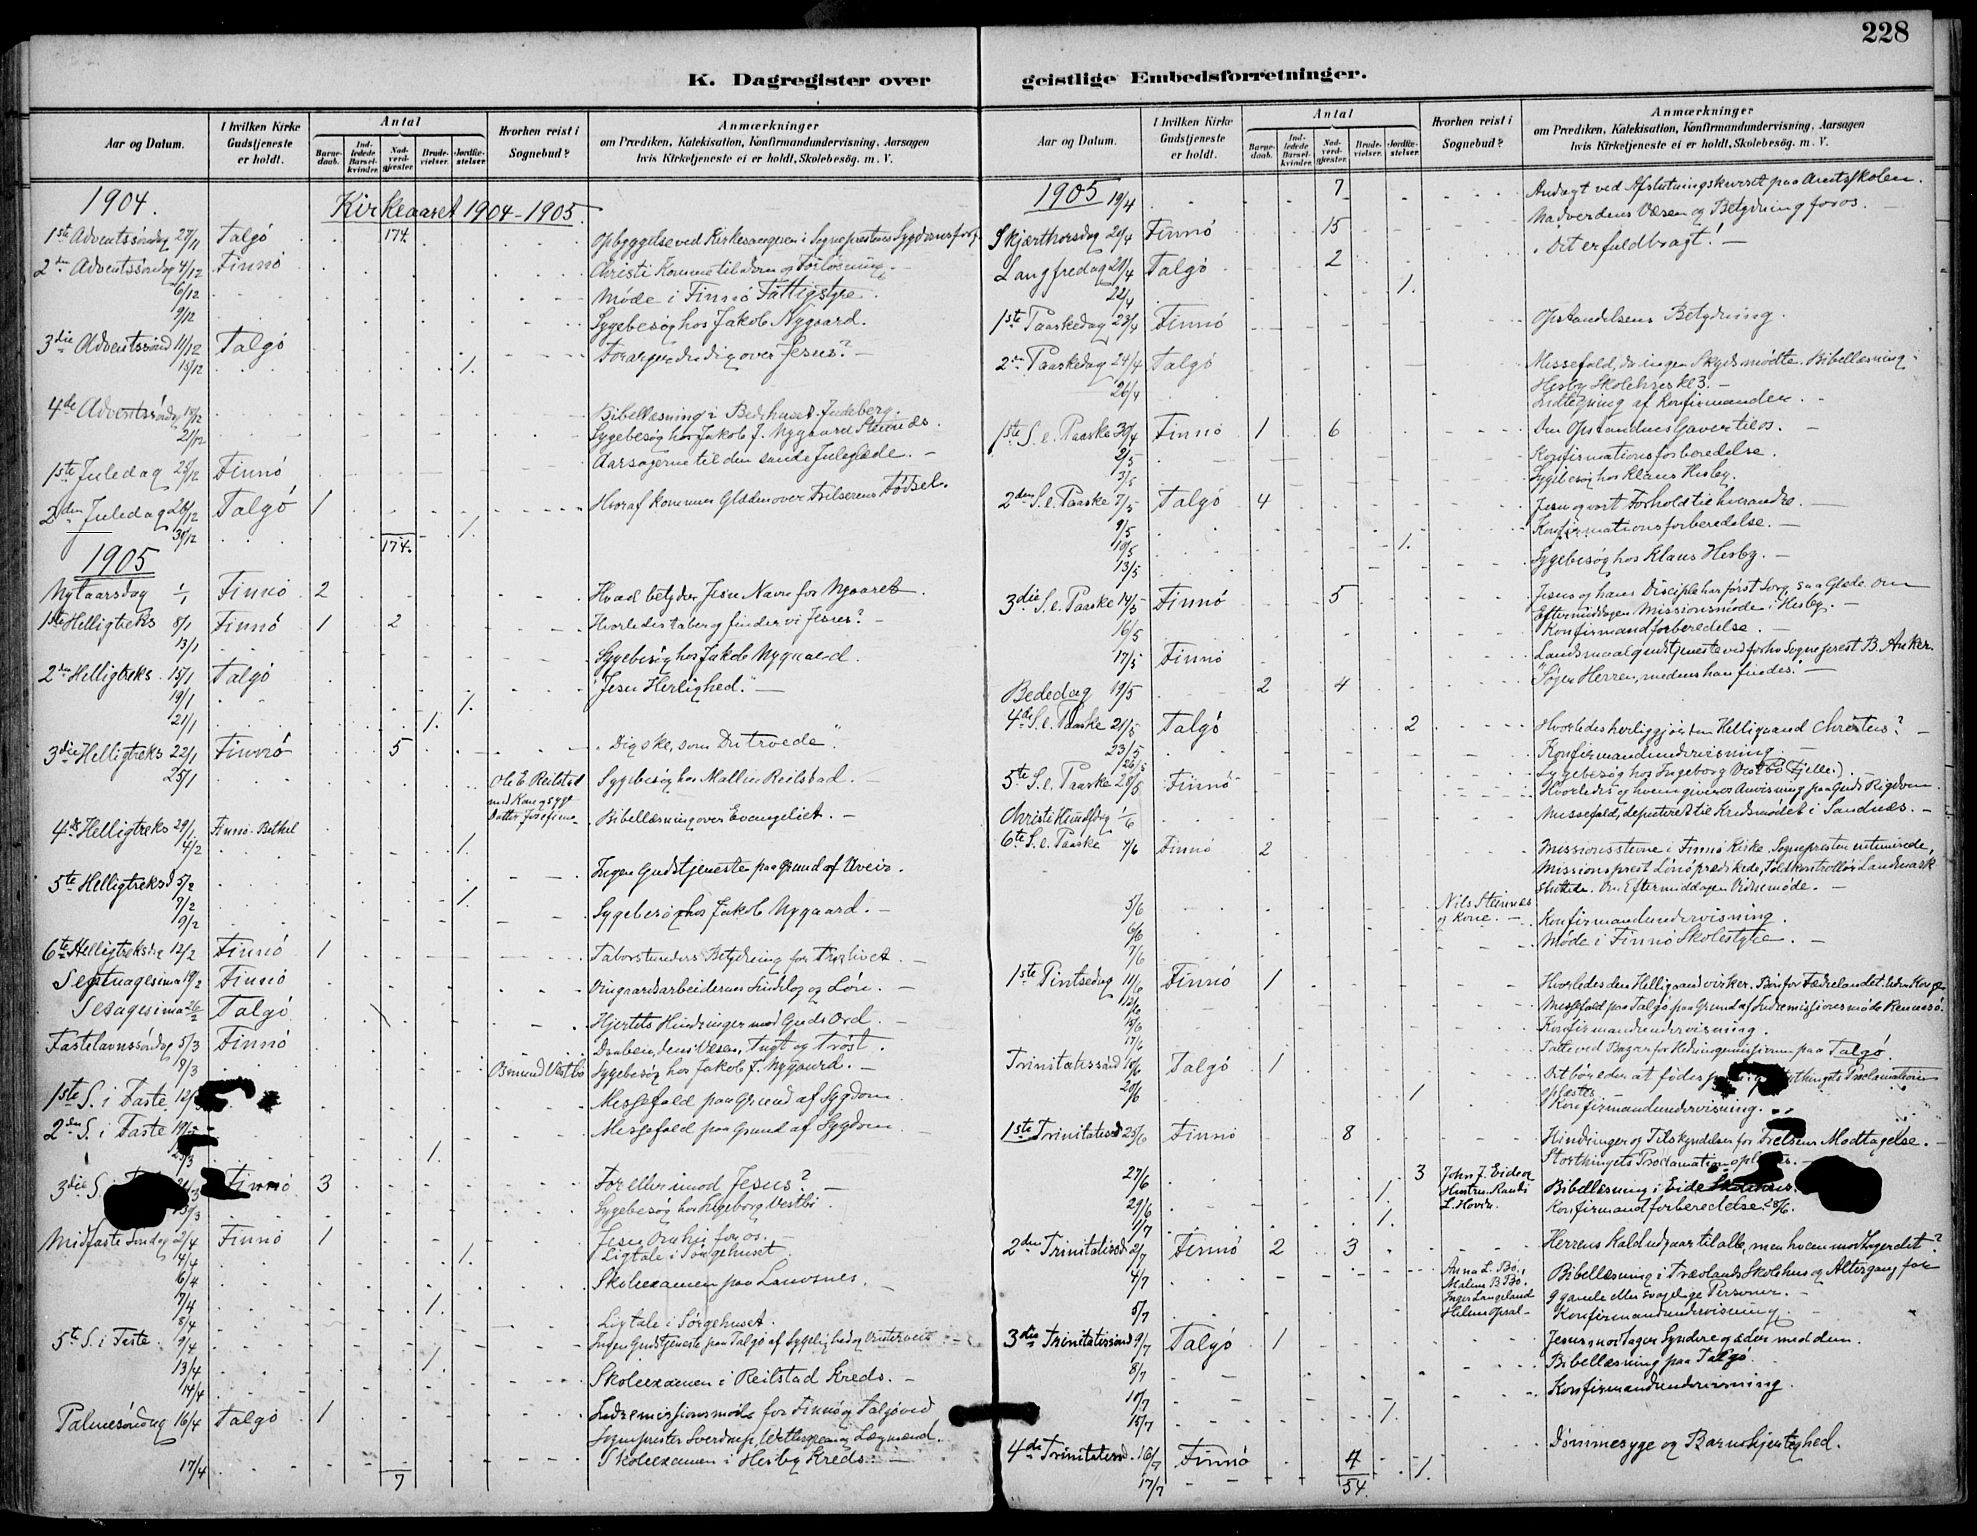 228
K. Dagregister over geistlige Embedsforretninger.
Aar og Datum.
I hvilken Kirke Gudstjeneste er holdt.
Antal
Barne-daab.
Ind-ledede Barsel-kvinder.
Nad-verd-gjester.
Brude-vielser.
Jordfæ-stelser.
Hvorhen reist i Sognebud?
Anmærkninger
om Prædiken, Katekisation, Konfirmandundervisning, Aarsagen
hvis Kirketjeneste ei er holdt, Skolebesög. m. V.
1904.
Kirkeaaret 1904-1905.
1ste Adventssöndag 27/11 Talgö 174. Opbyggelse ved Kirkesangeren i Sogneprestens Sygdomsforf.
2den Adventssöndag 4/12 Finnö Christi Komme til dom og Forløsning. -
6/12 Møde i Finnö Fattigstyre.
9/12 Sygebesøg hos Jakob Nygaard.
3die Adventssönd 11/12 Talgö Forarger du dig over Jesus? -
15/12 1.
4de Adventssöndag 18/12 Bibellæsning i Bedehuset Judeberg.
21/12 Sygebesøg hos Jakob J. Nygaard Steinnes.
1ste Juledag 25/12 Finnö Aarsagerne til den sande Juleglæde. -
2den Juledag 26/12 Talgö 1 Hvoraf kommer Glæden over Frelserens Fødsel.
31/12 1.
174.
1905
Nytaarsdag 1/1 Finnö 2 Hvad betyder Jesu Navn for Nyaaret.
1ste Helligtreks 8/1 Finnö 1 2 Hvorledes taber og finder vi Jesus? -
13/1 Sygebesøg hos Jakob Nygaard.
2den Helligtreks. 15/1 Talgö "Jesu Herlighed." -
19/1 1.
21/1 1.
3die Helligtreks 22/1 Finnö 5 "Dig ske, som Du troede".
25/1 Ole E. Reilstad Sygebesøg hos Mallin Reilstad. -
med Kone og sygt
Datter Josefine.
4de Helligtreks 29/1 Finnö-Bethel Bibellæsning over Evangeliet. -
4/2 1.
5te Helligtreksd 5/2 Ingen Gudstjeneste paa Grund af Uveir.
7/2 1.
9/2 Sygebesøg hos Jakob Nygaard. -
6te Helligtreksd 12/2 Finnö 1 Taborstundens Betydning for Troslivet. -
Septuagesima 19/2 Finnö Vingaardsarbeidernes Sindelag og Lön. -
Sexagesima 26/2 Talgö Hjertets Hindringer mod Guds Ord. -
Fastelavnssöndag 5/3 Finnö Daaben, dens Væsen, Tugt og Trøst.
9/3 Osmund Vestbö Sygebesøg hos Jakob J. Nygaard. -
1ste S. i Faste 12/3 Messefald paa Grund af Sygdom.
2den S. i Faste 19/3 Messefald paa Grund af Sygdom. -
25/3 1.
3die S. i Finnö 3 For eller imod Jesus? -
Sygebesøg hos Ingeborg Vestbö.
Midfaste Söndag 2/4 Finnö 1 Jesu Omhu for os. -
4/4 1. Ligtale i Sörgehuset.
6/4 Skoleexamen paa Lauvsnes.
7/4 1.
8/4 Ligtale i Sörgehuset.
5te S. i Faste. 9/4 Ingen Gudstjeneste paa Talgö af Sygelighed og Vinterveir
13/4 1.
14/4 Skoleexamen i Reilstad Kreds. -
Palmesöndag 16/4 Talgö 1 Indremissionsmøde for Finnö og Talgö ved
Sogneprester Sverdrup, og Lægmænd.
17/4 Skoleexamen i Hesby Kreds. -
7
1905
19/4 7 Andagt ved Afslutningskurset paa Amtsskolen.
Skjærthorsdag 20/4 Finnö 15 Nadverdens Væsen og Betydning for os. -
Langfredag 21/4 Talgö 2 "Det er fuldbragt!" -
22/4 1.
1ste Paaskedag 23/4 Finnö Opstandelsens Betydning.
2den Paaskedag 24/4 Talgö Messefald, da ingen Skyds mødte. Bibellæsning i
Hesby Skolehus Kl. 3. -
26/4 Indtegning af Konfirmander. -
1ste S. e. Paaske 30/4 Finnö 1 6 Den Opstandnes Gaver til os. -
2/5 Konfirmationsforberedelse.
3/5 Sygebesøg hos Klaus Hesby.
2den S. e. Paaske 7/5 Talgö 4 Jesu og vort Forhold til hverandre. -
9/5 Konfirmationsforberedelse. -
10/5 1.
13/5 Sygebesøg hos Klaus Hesby. -
3die S. e. Paaske 14/5 Finnö 5 Jesus og hans Disciple har först Sorg, saa Glæde. Om
Eftermiddagen Missionsmøde i Hesby. -
16/5 Konfirmandforberedelse. -
17/5 Finnö Landsmaalgudstjeneste ved forhv. Sogneprest B. Anker.
Bededag 19/5 2 4 "Søger Herren, medens han findes." -
4de S. e. Paaske 21/5 Talgö 2 Hvorledes herliggjør den Helligaand Christus? -
23/5 Konfirmandundervisning. -
26/5 Sygebesøg hos Ingeborg Vestbö (Fjelle). -
5te S. e. Paaske 28/5 Finnö Hvorledes og hvem giver os Anvisning paa Guds Rigdom.
Christi Himmelfartsdag 1/6 Messefald, deputeret til Kredsmødet i Sandnæs. -
6te S. e. Paaske 4/6 Finnö 2 Missionsstevne i Finnö Kirke. Sognepresten intimerede,
Missionsprest Lönö prædikede, Toldkontrollör Landmark
sluttede. Om Eftermiddagen Vidnemøde. -
5/6 Nils Steinnes
og Kone. -
6/6 Konfirmandundervisning.
7/6 Møde i Finnö Skolestyre. -
1ste Pintsedag 11/6 Finnö 1 Hvorledes den Helligaand virker. Bön for Fædrelandet uden Konge
12/6 Messefald paa Talgö paa Grund af Indremissionsmøde Rennesö.
15/6 Konfirmandundervisning.
17/6 Tale ved Bazar for Hedningemissionen paa Talgö.
Trinitatissönd 18/6 Talgö 1 Storthingets Proclamation
oplæstes.
20/6 1 Konfirmandundervisning.
1ste Trinitatissd 25/6 Finnö 8 Hindringer og Tilskyndelser for Frelsens Modtagelse. -
Storthingets Proclamation oplæstes. -
27/6 3 John J. Eide og Bibellæsning i Eide Skolehus.
Hustru Randi
29/6 1. Konfirmandforberedelse 28/6.
1/7 1.
2den Trinitatissd 2/7 Finnö 2 3 Herrens Kald udgaar til alle, men hvem modtager det?
4/7 Anna L. Bö, Bibellæsning i Trædlands Skolehus og Altergang for
Malene B Bö,
Inger Langeland 9 gamle eller svagelige Personer. -
5/7 Helene Opsal - Konfirmandundervisning.
3die Trinitatissönd 9/7 Talgö 1 Jesus modtager Syndere og æder med dem.
8/7 Bibellæsning paa Talgö.
10/7 Konfirmandundervisning.
15/7 1.
4de Trinitatissd. 16/7 Finnö 4 Dømmesyge og Barmhjertighed.
17/7 1.
54.